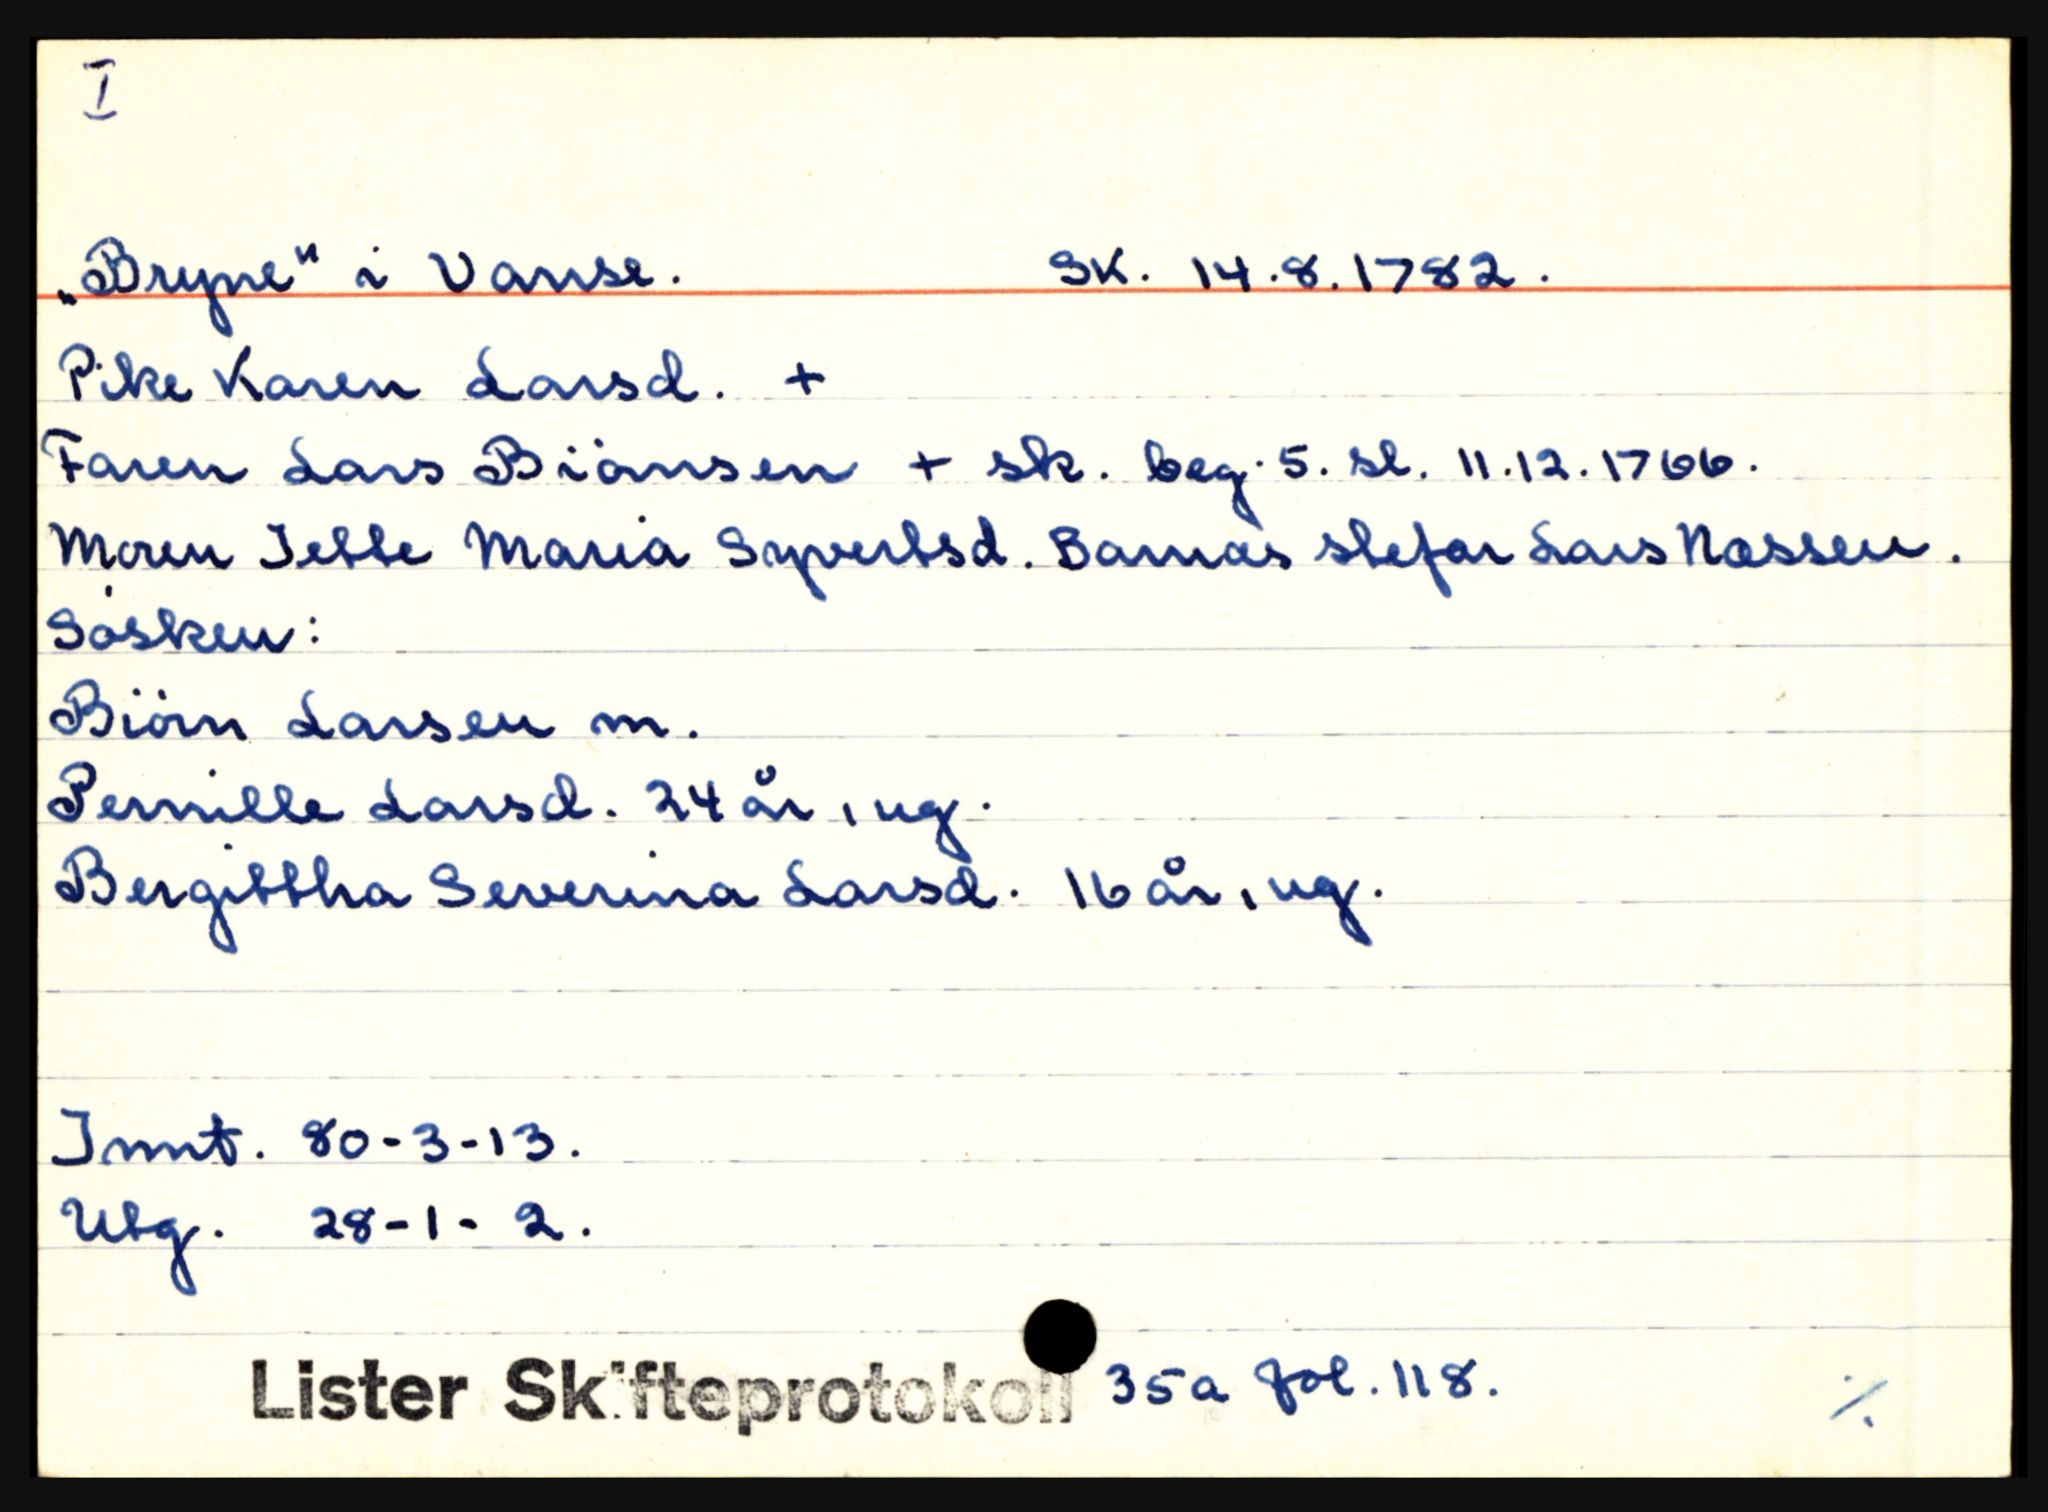 I
„Bryne" i Vanse. SK. 14.8.1782.
Pike Karen Larsd. +
Faren Lars Biönsen + sk. beg. 5. sl. 11.12.1766.
Moren Jette Maria Syvertsd. Barnas stefar Lars Nassen.
Sösken:
Biörn Larsen m.
Pernille Larsd. 24 år, ug.
Bergittha Severina Larsd. 16 år, ug.
Innt. 80-3-13.
Utg. 28-1-2.
Lister Skifteprotokoll 35a fol. 118.
./.